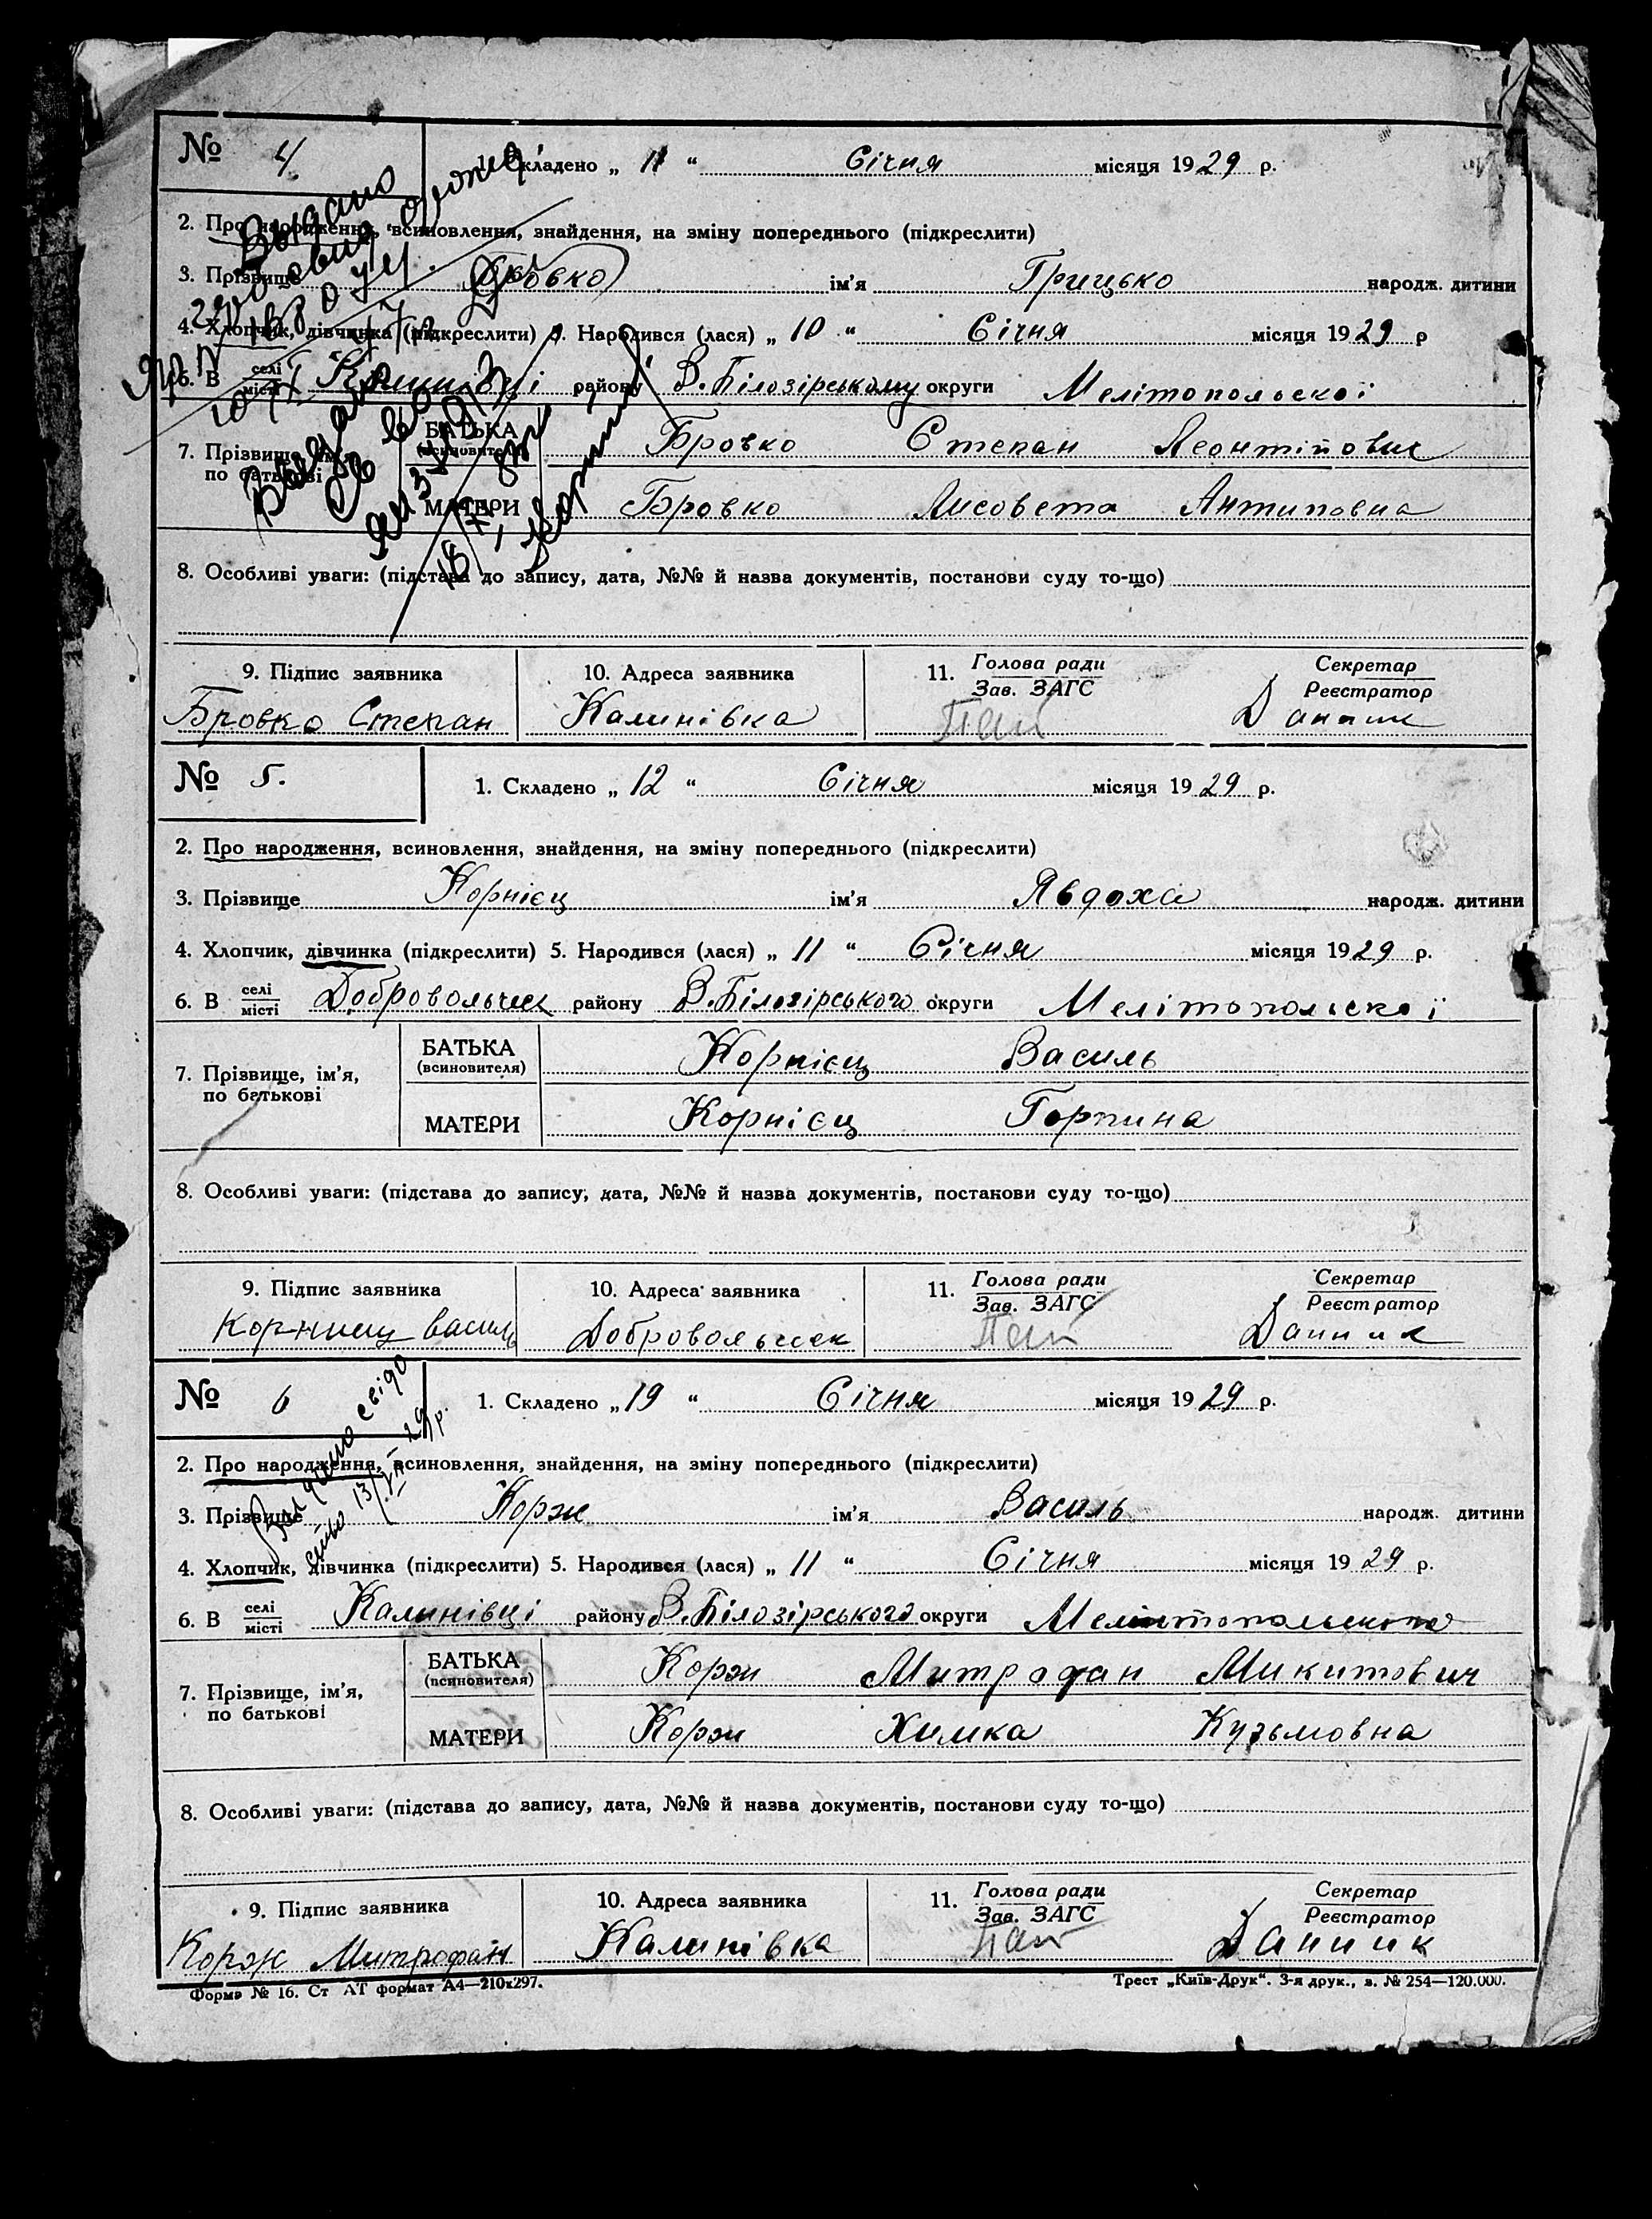 № 4
1. Складено „ 11 “ Січня місяця 1929 р.
2. Про народження, всиновлення, знайдення, на зміну попереднього (підкреслити)
3. Прізвище Бровко ім'я Грицько народж. дитини
4. Хлопчик, дівчинка (підкреслити) 5. Народився (лася) „ 10 “ Січня місяця 1929 р
6. В селі місті Калинівці району В.Білозірському округи Мелітопольскої
7. Прізвище, ім'я, по батькові
БАТЬКА (всиновителя) Бровко Степан Леонтійович
МАТЕРИ Бровко Лисовета Антиповна
Выдано
Выдано
8. Особливі уваги: (підстава до запису, дата, №№ й назва документів, постанови суду то-що)
9. Підпис заявника 10. Адреса заявника 11. Голова ради Зав. ЗАГС Секретар Реєстратор
Бровко Степан Калинівка
№ 5.
1. Складено „ 12 “ Січня місяця 1929 р.
2. Про народження, всиновлення, знайдення, на зміну попереднього (підкреслити)
3. Прізвище Корнієц ім'я Явдоха народж. дитини
4. Хлопчик, дівчинка (підкреслити) 5. Народився (лася) „ 11 “ Січня місяця 1929 р.
6. В селі місті району В.Білозірського округи Мелітопольскої
7. Прізвище, ім'я, по батькові
БАТЬКА (всиновителя) Корнієц Василь
МАТЕРИ Корнієц Горпина
8. Особливі уваги: (підстава до запису, дата, №№ й назва документів, постанови суду то-що)
9. Підпис заявника 10. Адреса заявника 11. Голова ради Зав. ЗАГС Секретар Реєстратор
Корниец Василь Данник
№ 6
1. Складено „ 19 “ Січня місяця 1929 р.
Выдано свідо
ство 13/VII-29 р.
2. Про народження, всиновлення, знайдення, на зміну попереднього (підкреслити)
3. Прізвище Корж ім'я Василь народж. дитини
4. Хлопчик, дівчинка (підкреслити) 5. Народився (лася) „ 11 “ Січня місяця 1929 р.
6. В селі місті Калинівці району В.Білозірського округи
7. Прізвище, ім'я, по батькові
БАТЬКА (всиновителя) Корж Митрофан Микитович
МАТЕРИ Корж Химка Кузьмовна
8. Особливі уваги: (підстава до запису, дата, №№ й назва документів, постанови суду то-що)
9. Підпис заявника 10. Адреса заявника 11. Голова ради Зав. ЗАГС Секретар Реєстратор
Корж Митрофан Калинівка Данник
Форма № 16. Ст АТ формат А4—210х297. Трест „Київ-Друк“. 3-я друк., з. № 254—120.000.